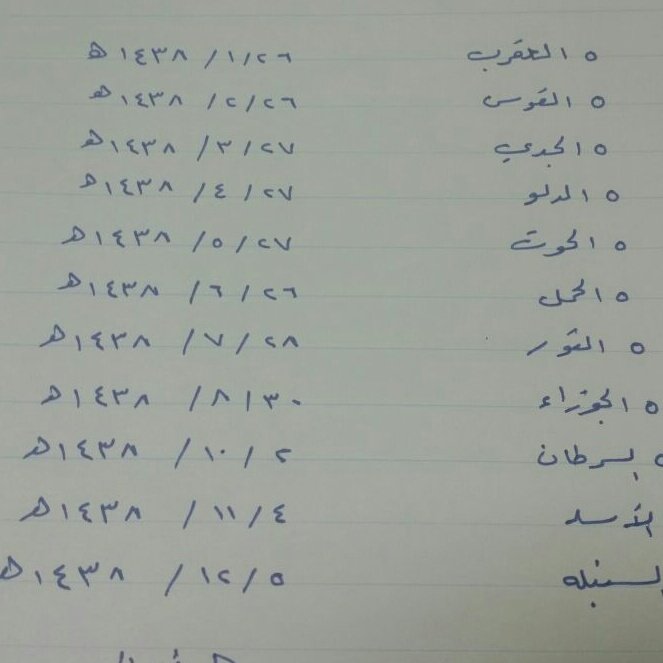 ٥ العقرب ١/٢٦/ ١٤٣٨ هـ
٥ القوس ٢/٢٦/ ١٤٣٨ هـ
٥ الجدي ٣/٢٧/ ١٤٣٨ هـ
٥ الدلو ٤/٢٧/ ١٤٣٨ هـ
٥ الحوت ٥/٢٧/ ١٤٣٨ هـ
٥ الحمل ٦/٢٦/ ١٤٣٨ هـ
٥ الثور ٧/٢٨/ ١٤٣٨ هـ
٥ الجوزاء ٨/٣٠/ ١٤٣٨ هـ
٥ السرطان ١٠/٢/ ١٤٣٨ هـ
الأسد ١١/٤/ ١٤٣٨ هـ
السنبله ١٢/٥/ ١٤٣٨ هـ